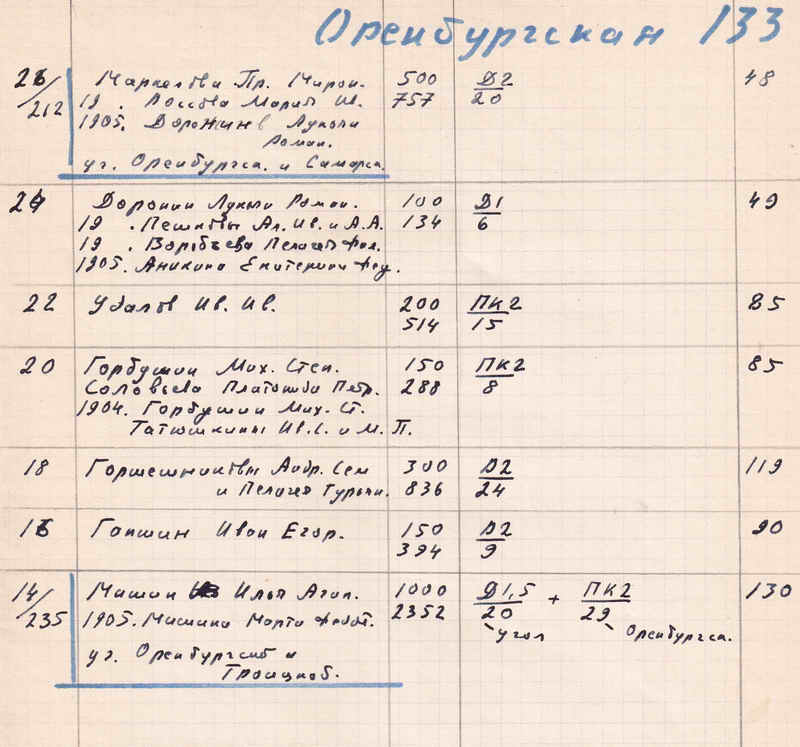 Оренбургская 133
26/212 Маркелова Пр. Мирон. 500 Д2 48
19 . Россова Мария Ив. 757 20
1905. Доронин Лукьян
Роман.
уг. Оренбургск. и Самарск.
24 Доронин Лукьян Роман. 100 Д1 49
19 . Пешковы Ал. Ив. и А.А. 134 6
19 . Воробьева Пелагея Фил.
1905. Аникина Екатерина Фед.
22 Удалов Ив. Ив. 200 ПК2 85
514 15
20 Горбушин Мих. Степ. 150 ПК2 85
Соловьева Платонида Петр. 288 8
1904. Горбушин Мих. Ст.
Татюшкины Ив.С. и М. П.
18 Горшешниковы Андр. Сем 300 Д2 119
и Пелагея Гурьян. 836 24
16 Гапшин Иван Егор. 150 Д2 90
394 9
14/235 Машин Илья Агап. 1000 Д1,5 + ПК2 130
1905. Машина Марта Федот. 2352 20 29
угол Оренбургск.
уг. Оренбургской и
Троицкой.